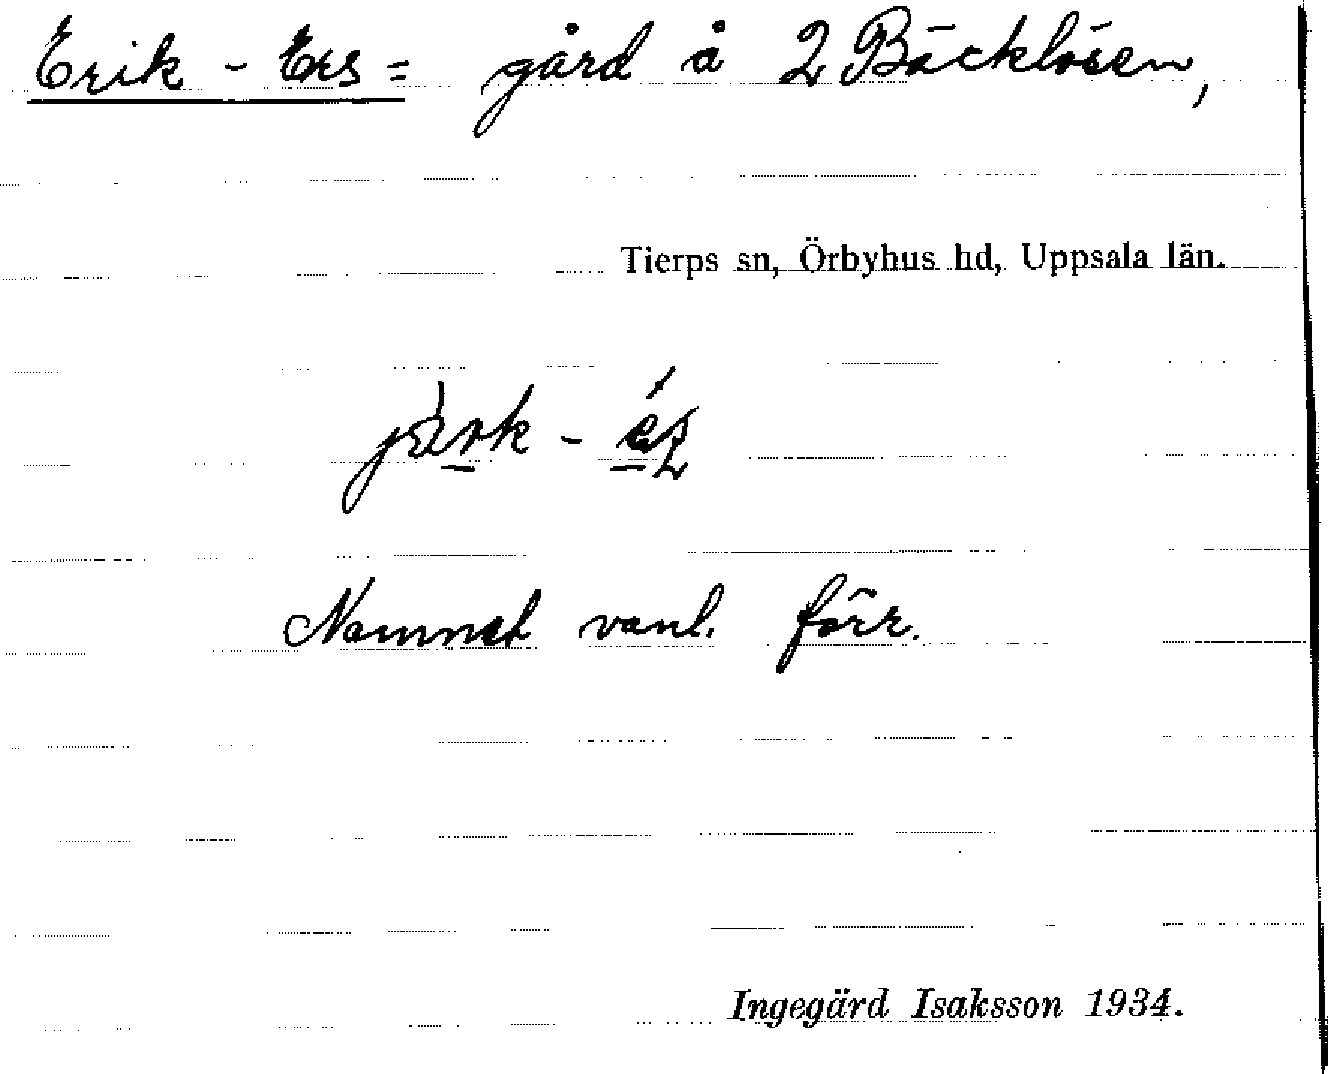 Erik - Ers = gård å 2 Bäcklösen,
Tierps sn, Örbyhus hd, Uppsala län.
Namnet vanl. förr.
Ingegärd Isaksson 1934.